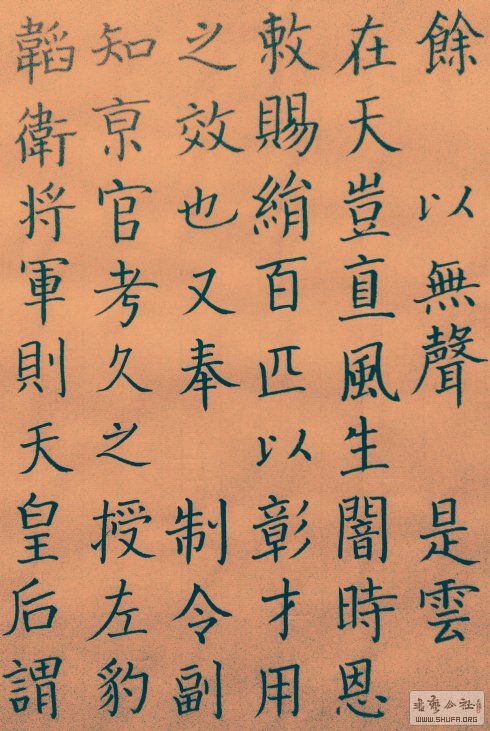 餘 以無聲 是雲
在天豈直風生闇時恩
敕賜絹百匹以彰才用
之效也又奉 制令副
知亰官考久之授左豹
韜衛將軍則天皇后謂
書藝公社
WWW.SHUFA.ORG